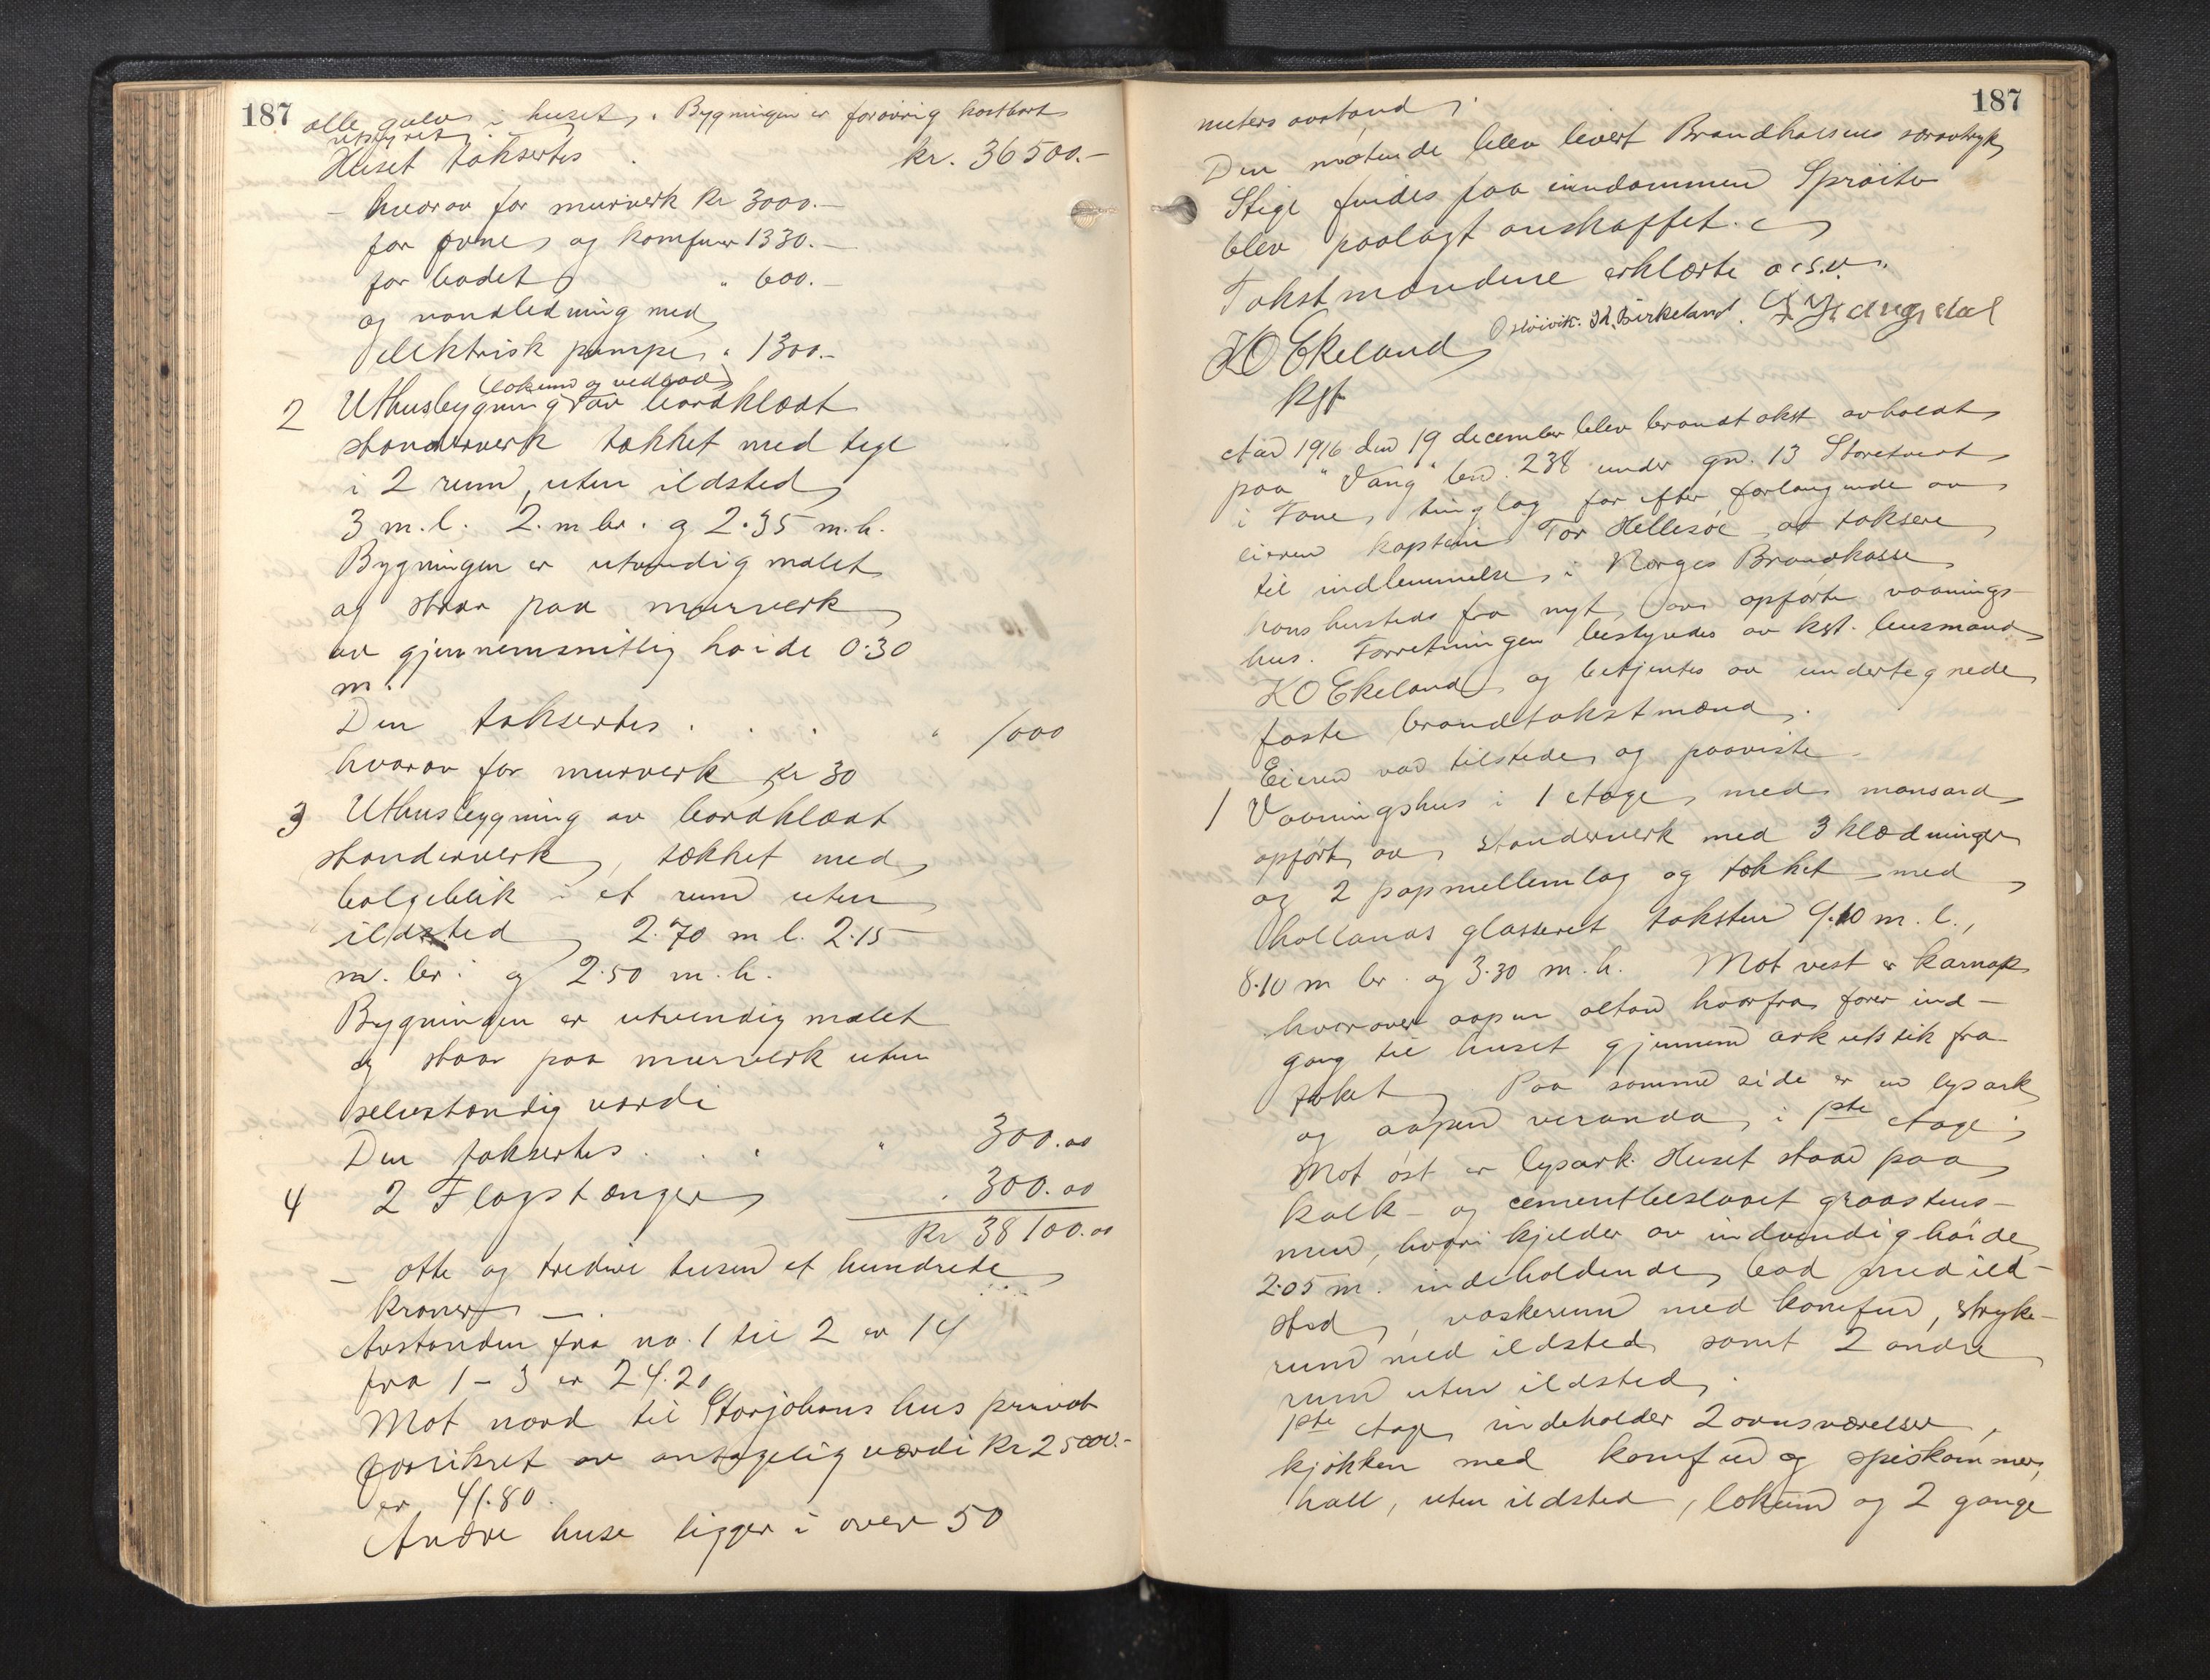 187
alle gulv i huset. Bygningen er forøvrig kostbart
utstyret.
Huset takseres . kr. 36500.-
- hvorav for murverk kr 3000.-
for ovne og komfur 1330.-
for badet " 600.-
og vandledning med
elektrisk pumpe " 1300.-
(lokum og vedbod)
2 Uthusbygning av bordklædt
standerverk tækket med tegl
i 2 rum, uten ildsted
3 m.l. 2. m br. og 2.35 m.h.
Bygningen er utvendig malet
og staar paa murverk
av gjennemsnitlig høide 0.30
m.
Den takseres . . . " 1000
hvorav for murverk kr 30
3 Uthusbygning av bordklædt
standerverk, tækket med
bølgeblik i et rum uten
ildsted 2.70 m l. 2.15
m. br. og 2.50 m.h.
Bygningen er utvendig malet
og staar paa murverk uten
selvstændig værdi
Den takseres . . . " 300.00
4 2 Flagstænger . 300.00
Kr 38100.00
- otte og tredive tusen et hundrede
kroner -.
Avstanden fra no. 1 til 2 er 14
fra 1 - 3 er 24.20
Mot nord til Storjohans hus privat
forsikret av antagelig værdi kr 25000.-
er 41.80.
Andre huse ligger i over 50
187
meters avstand.
Den møtende blev levert Brandkassens særavtryk
Stige findes paa eiendommen Sprøite
blev paalagt anskaffet.
Takstmændene erklærte o.s.v.
KO Ekeland Birkeland.
kst
Aar 1916 den 19 december blev brandtakst avholdt
paa "Vang" bn. 238 under gn. 13 Storetveit
i Fane tinglag for efter forlangende av
eieren kaptein Tor Hellesøe at taksere
til indlemmelse i Norges Brandkasse
hans husteds fra nyt av opførte vaanings-
hus. Forretningen bestyredes av kst. lensmand
KO Ekeland og betjentes av undertegnede
faste brandtakstmænd.
Eieren var tilstede og paaviste
1 Vaaningshus i 1 etage med mansard
opført av standerverk med 3 klædninger
og 2 papmellemlag og tækket med
hollands glasseret taksten 9.10 m. l.,
8.10 m br. og 3.30 m. h. Mot vest er karnap
hvorover aapen altan hvorfra fører ind-
gang til huset gjennem arkutstik fra
taket. Paa samme side er en lysark
og aapen veranda i 1ste etage;
Mot øst er lysark. Huset staar paa
kalk- og cementbeslaaet graastens-
mur, hvori kjelder av indvendig høide
2.05 m. indeholdende bad med ild-
sted, vaskerum med komfur, stryke-
rum med ildsted samt 2 andre
rum uten ildsted.
1ste etage indeholder 2 ovnsværelser,
kjøkken med komfur og spiskammer,
hall, uten ildsted, lokum og 2 gange